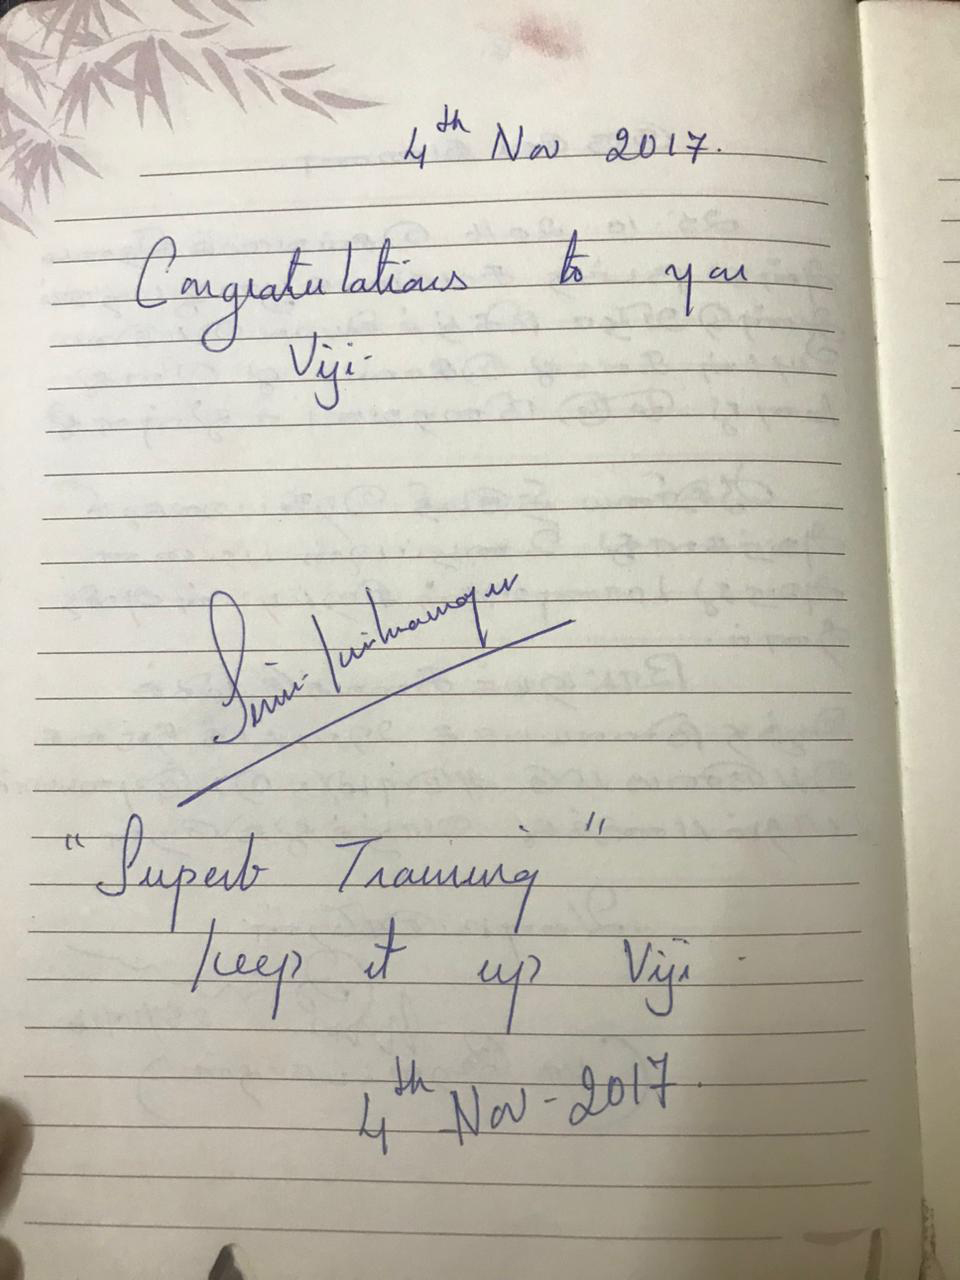 4th Nov 2017.
Congratulations to you
Viji-
"Superb Training"
keep it up Viji
4th Nov - 2017.